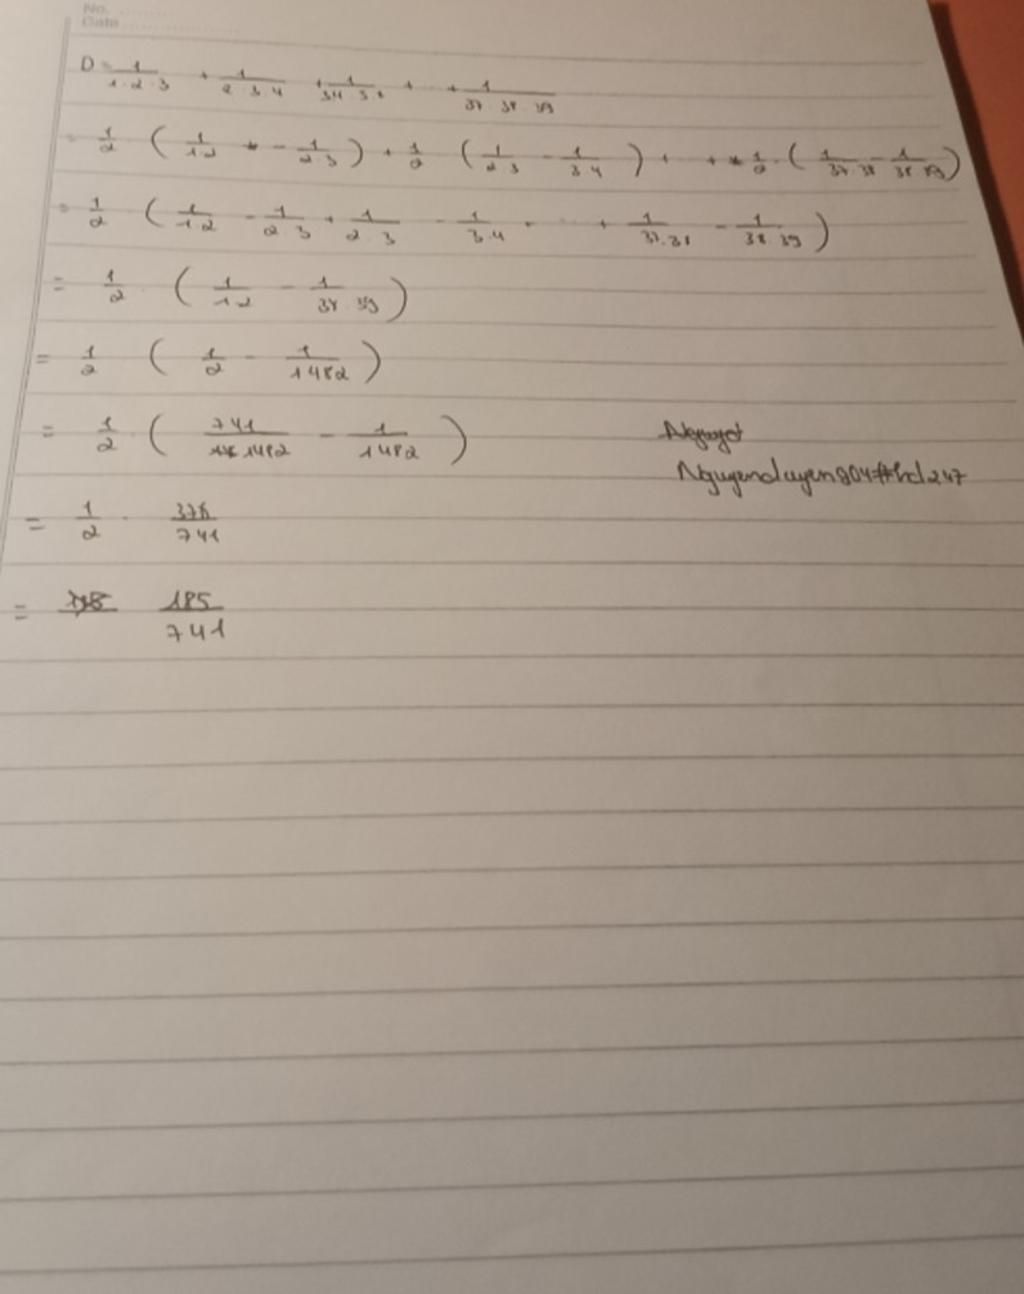 No. ..........
Date ..........
D = 1/1.2.3 + 1/2.3.4 + 1/3.4.5 + ... + 1/37.38.39
= 1/2 (1/1.2 - 1/2.3) + 1/2 (1/2.3 - 1/3.4) + ... + 1/2 . (1/37.38 - 1/38.39)
= 1/2 (1/1.2 - 1/2.3 + 1/2.3 - 1/3.4 . ... + 1/37.38 - 1/38.39)
= 1/2 . (1/1.2 - 1/38.39)
= 1/2 (1/2 - 1/1482)
= 1/2 . (741/1482 - 1/1482)
Nguyenduyen904#hd247
= 1/2 . /741
= 185/741